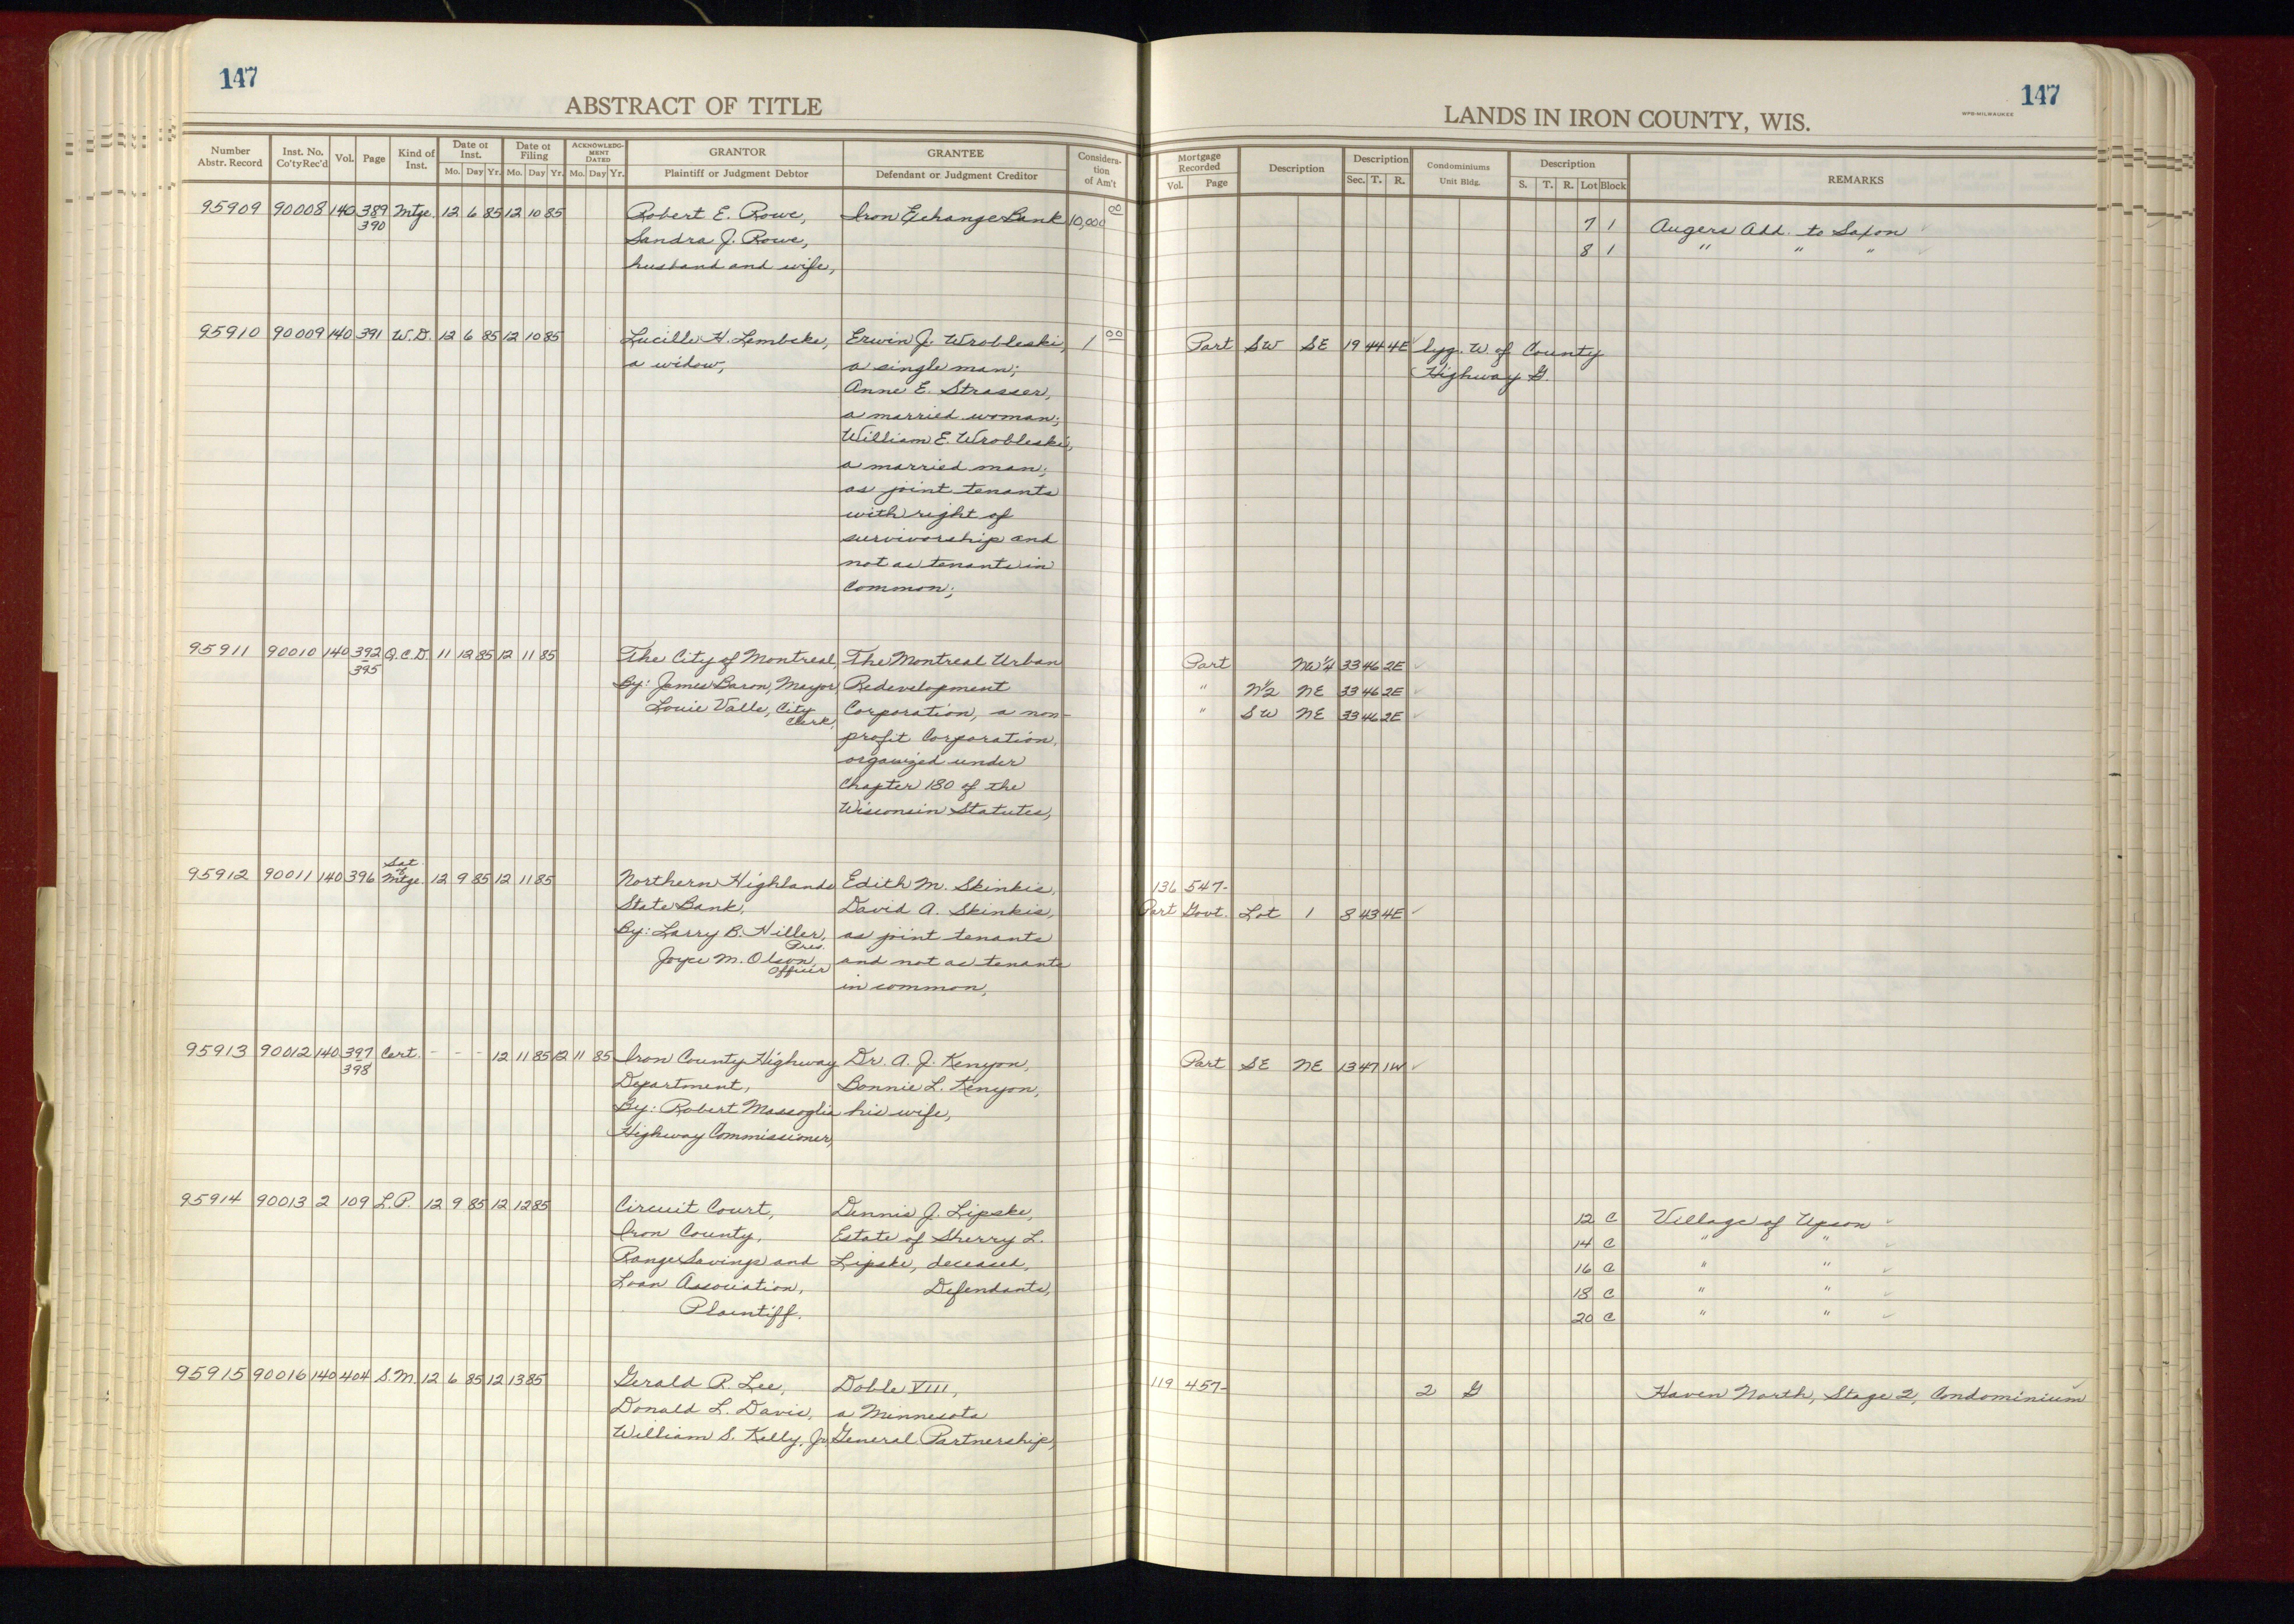 147
ABSTRACT OF TITLE
Number Abstr. Record | Inst. No. Co'ty Rec'd | Vol. | Page | Kind of Inst. | Date of Inst. Mo. Day Yr. | Date of Filing Mo. Day Yr. | ACKNOWLEDGMENT DATED Mo. Day Yr. | GRANTOR Plaintiff or Judgment Debtor | GRANTEE Defendant or Judgment Creditor | Consideration of Am't
95909 90008 140 389 Mtge. 12 6 85 12 10 85 Robert E. Rowe, Iron Exchange Bank 10,000 00
390 Sandra J. Rowe,
husband and wife,
95910 90009 140 391 W.D. 12 6 85 12 10 85 Lucille H. Lembcke, Erwin J. Wrobleski, 1 00
a widow, a single man;
Anne E. Strasser,
a married woman;
William E. Wrobleski,
a married man;
as joint tenants
with right of
survivorship and
not as tenants in
Common;
95911 90010 140 392 Q.C.D. 11 12 85 12 11 85 The City of Montreal, The Montreal Urban
395 By: James Baron, Mayor, Redevelopment
Louie Valle, City Clerk, Corporation, a non-
profit Corporation,
organized under
Chapter 180 of the
Wisconsin Statutes,
95912 90011 140 396 Sat. of Mtge. 12 9 85 12 11 85 Northern Highlands Edith M. Skinkis,
State Bank, David A. Skinkis,
By: Larry B. Hiller, Pres. as joint tenants
Joyce M. Olson, Officer and not as tenants
in common,
95913 90012 140 397 Cert. - - - 12 11 85 12 11 85 Iron County Highway Dr. A. J. Kenyon,
398 Department, Bonnie L. Kenyon,
By: Robert Massoglia his wife,
Highway Commissioner,
95914 90013 2 109 L.P. 12 9 85 12 12 85 Circuit Court, Dennis J. Lipske,
Iron County, Estate of Sherry L.
Range Savings and Lipske, deceased,
Loan Association, Defendants,
Plaintiff.
95915 90016 140 404 S.M. 12 6 85 12 13 85 Gerald R. Lee, Doble VIII,
Donald L. Davis, a Minnesota
William S. Kelly, Jr. General Partnership,
147
WPB-MILWAUKEE
LANDS IN IRON COUNTY, WIS.
Mortgage Recorded Vol. Page | Description | Description Sec. T. R. | Condominiums Unit Bldg. | Description S. T. R. Lot Block | REMARKS
7 1 Augers Add. to Saxon
8 1 " " "
Part SW SE 19 44 4E lyg. W. of County
Highway G.
Part NW¼ 33 46 2E
" N½ NE 33 46 2E
" SW NE 33 46 2E
136 547-
Part Govt. Lot 1 8 43 4E
Part SE NE 13 47 1W
12 C Village of Upson
14 C " "
16 C " "
18 C " "
20 C " "
119 457- 2 G Haven North, Stage 2, Condominium